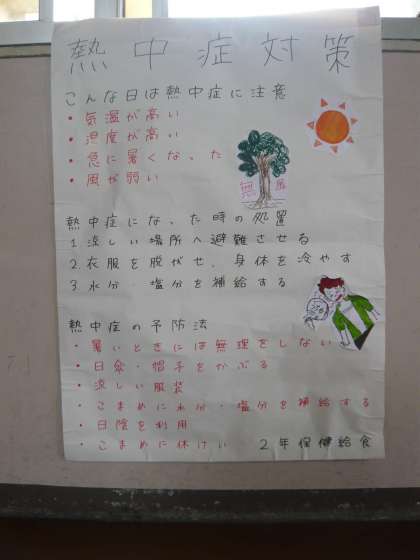 熱中症対策
こんな日は熱中症に注意
・気温が高い
・湿度が高い
・急に暑くなった
・風が弱い
無風
熱中症になった時の処置
1.涼しい場所へ避難させる
2.衣服を脱がせ、身体を冷やす
3.水分・塩分を補給する
熱中症の予防法
・暑いときには無理をしない
・日傘・帽子をかぶる
・涼しい服装
・こまめに水分・塩分を補給する
・日陰を利用
・こまめに休けい
2年保健給食